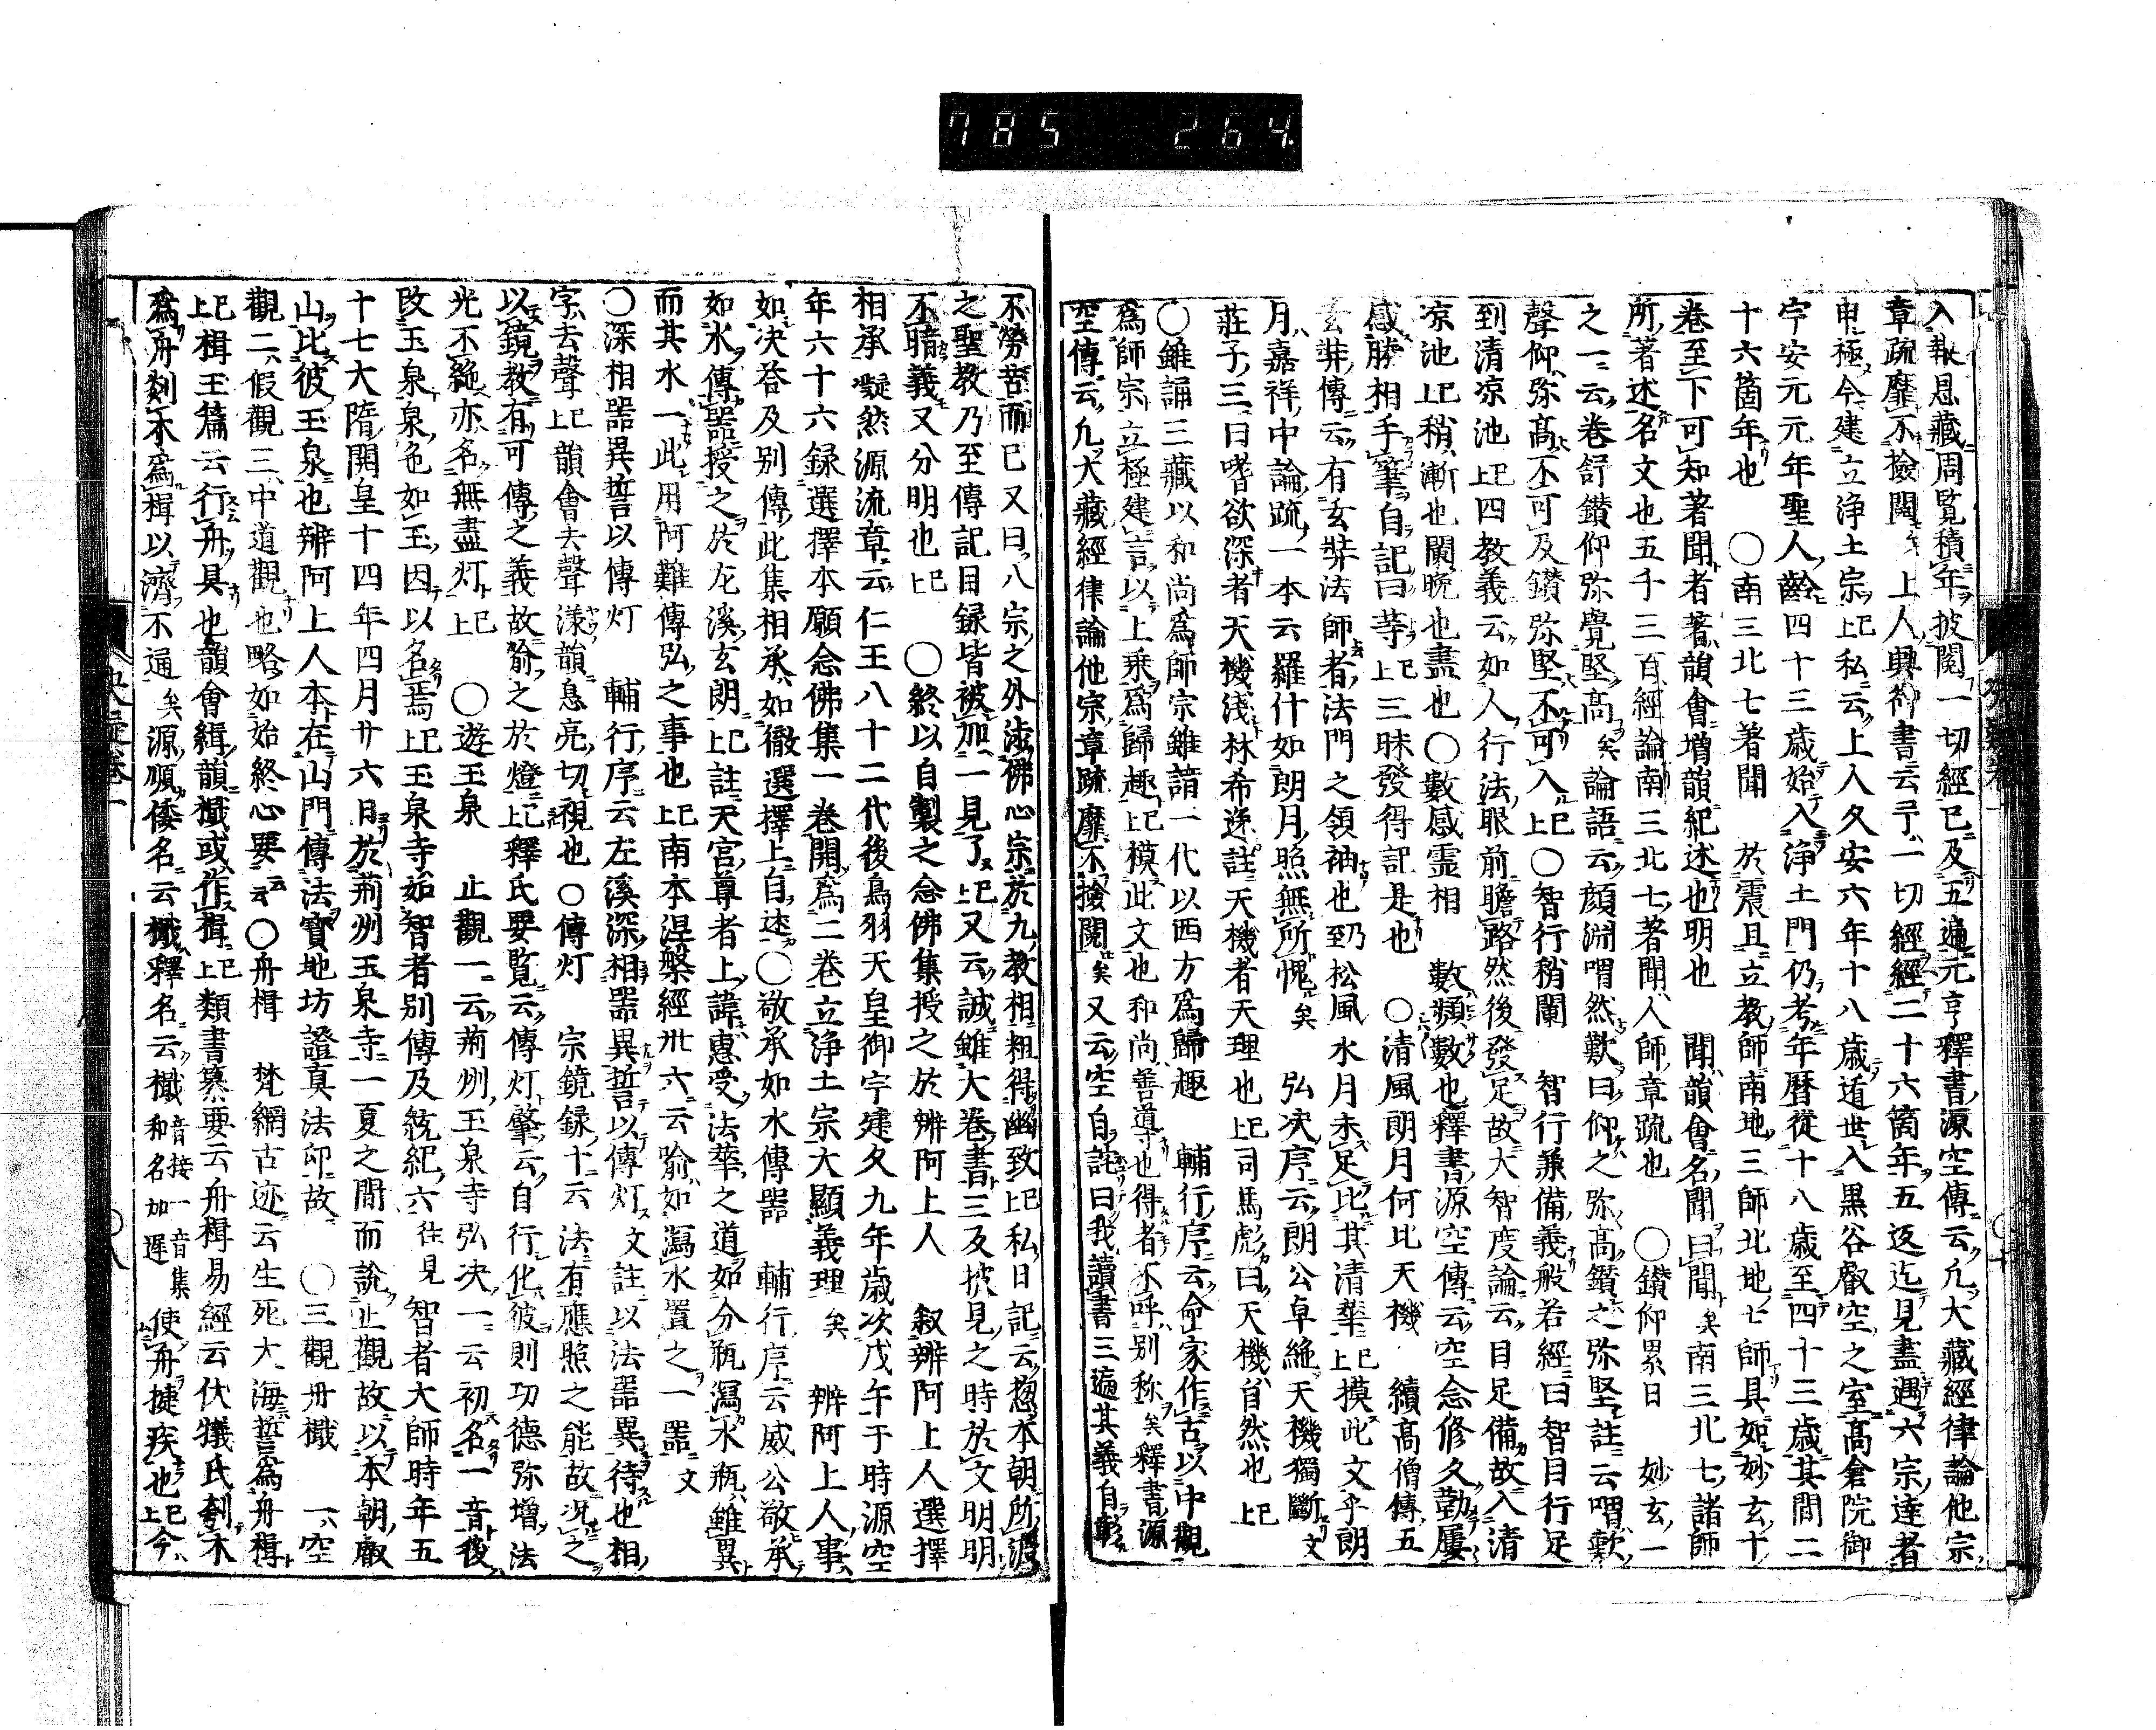 785 264
入報恩藏周覧積年披閱一切經已及五遍元亨釋書源空傳云凡大藏經律論他宗
章疏靡不撿閱矣上人興御書云予一切經經二十六箇年五返迄見盡遇六宗達者
申極今建立浄土宗上已私云上人久安六年十八歳遁世入黒谷叡空之室高倉院御
宇安元元年聖人齢四十三歳始入浄土門仍考年暦從十八歳至四十三歳其間二
十六箇年也 ○南三北七著聞 於震旦立教師南地三師北地七師具如妙玄十
卷至下可知著聞者著韻會増韻紀述也明也 聞韻會名聞曰聞矣南三北七諸師
所著述名文也五千三百經論南三北七著聞人師章疏也 ○鑚仰累日 妙玄一
之一云卷舒鑚仰弥覺堅高矣論語云顔渕喟然歎曰仰之弥高鑚之弥堅註云喟歎
聲仰弥高不可及鑚弥堅不可入上已○智行稍闌 智行兼備義般若經曰智目行足
到清凉池上已四教義云如人行法眼前瞻路然後發足故大智度論云目足備故入清
凉池上已稍漸也闌晩也盡也○數感霊相 數頻數也釋書源空傳云空念修久勤屢
感勝相手筆自記曰等上已三昧發得記是也 ○清風朗月何比天機 續高僧傳五
玄奘傳云有玄奘法師者法門之領袖也乃至松風水月未足比其清華上已摸此文乎朗
月嘉祥中論疏一本云羅什如朗月照無所愧矣 弘决序云朗公卓絶天機獨斷文
莊子三曰嗜欲深者天機浅林希逸註天機者天理也上已司馬彪曰天機自然也上已
○雖誦三藏以和尚爲師宗雖諳一代以西方爲歸趣 輔行序云命家作古以中觀
爲師宗立極建言以上乗爲歸趣上已模此文也和尚善導也得者不呼別称矣釋書源
空傳云凡大藏經律論他宗章疏靡不撿閱矣又云空自詫曰我讀書三遍其義自彰
不勞苦而已又曰八宗之外渉佛心宗於九教相粗得幽致上已私日記云惣本朝所渡
之聖教乃至傳記目録皆被加一見了上已又云誠雖大卷書三反披見之時於文明明
不暗義又分明也上已 ○終以自製之念佛集授之於辨阿上人 叙辨阿上人選擇
相承凝然源流章云仁王八十二代後鳥羽天皇御宇建久九年歳次戊午于時源空
年六十六録選擇本願念佛集一卷開爲二卷立浄土宗大顯義理矣 辨阿上人事
如决荅及别傳此集相承如徹選擇上自述○敬承如水傳噐 輔行序云威公敬承
如水傳噐授之於左溪玄朗上已註天宮尊者上諱惠受法華之道如分瓶瀉水瓶雖異
而其水一此用阿難傳弘之事也上已南本涅槃經卅六云喩如瀉水置之一噐文
○深相噐異誓以傳灯 輔行序云左溪深相噐異誓以傳灯文註以法噐異待也相
字去聲上已韻會去聲漾韻息亮切視也○傳灯 宗鏡録十云法有應照之能故况之
以鏡教有可傳之義故喩之於燈上已釋氏要覧云傳灯肇云自行化彼則功德弥増法
光不絶亦名無盡灯上已 ○遊玉泉 止觀一云荊州玉泉寺弘决一云初名一音後
改玉泉泉色如玉因以名焉上已玉泉寺如智者别傳及統紀六往見智者大師時年五
十七大隋開皇十四年四月廿六日於荊州玉泉寺一夏之間而說止觀故以本朝叡
山比彼玉泉也辨阿上人本在山門傳法寳地坊證真法印故 ○三觀舟檝 一空
觀二假觀三中道觀也略如始終心要云云○舟楫 梵網古迹云生死大海誓爲舟楫
上已楫玉篇云行舟具也韻會緝韻檝或作楫上已類書纂要云舟楫易經云伏犠氏刳木
爲舟剡木爲楫以濟不通矣源順倭名云檝釋名云檝音接一音集和名加遲使舟捷疾也上已今